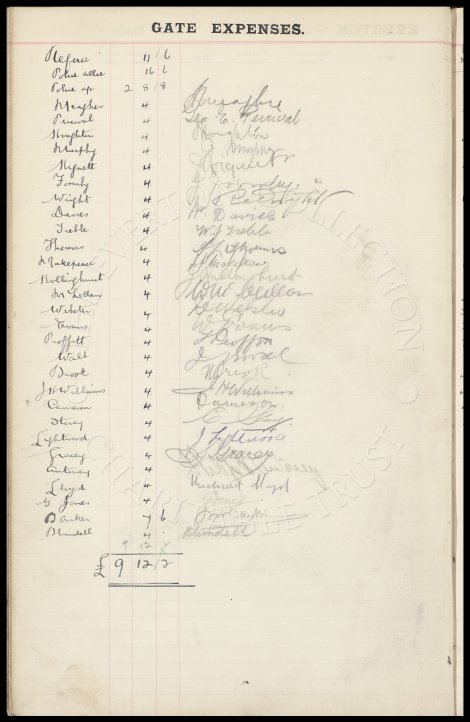 GATE EXPENSES.
Referee 11 6
Police 16 6
Police 2 8 8
Meagher 4
Percival 4 Geo E. Percival
Houghton 4 Houghton
Murphy 4 Murphy
Hignett 4 Hignett
Formby 4 Formby
Wright 4 Wright
Davies 4 H. Davies
Treble 4 W J Treble
Thomas 4 Thomas
Makepeace 4 Makepeace
Hollinghurst 4 Hollinghurst
McLellan 4 W McLellan
Webster 4 Webster
Evans 4 W Evans
Proffitt 4 Proffitt
Walt 4
Brook 4 Brook
J H Williams 4 J H Williams
Cameron 4 Cameron.
Storey 4 E Storey
Lightwood 4 J Lightwood
Gracey 4 Gracey
4
Lloyd 4 Richard Lloyd
G Jones 4 Jones
Banker 7 6
Blundell 4 . Blundell
9 12 2
£ 9 12 2
EVERTON COLLECTION CHARITABLE TRUST